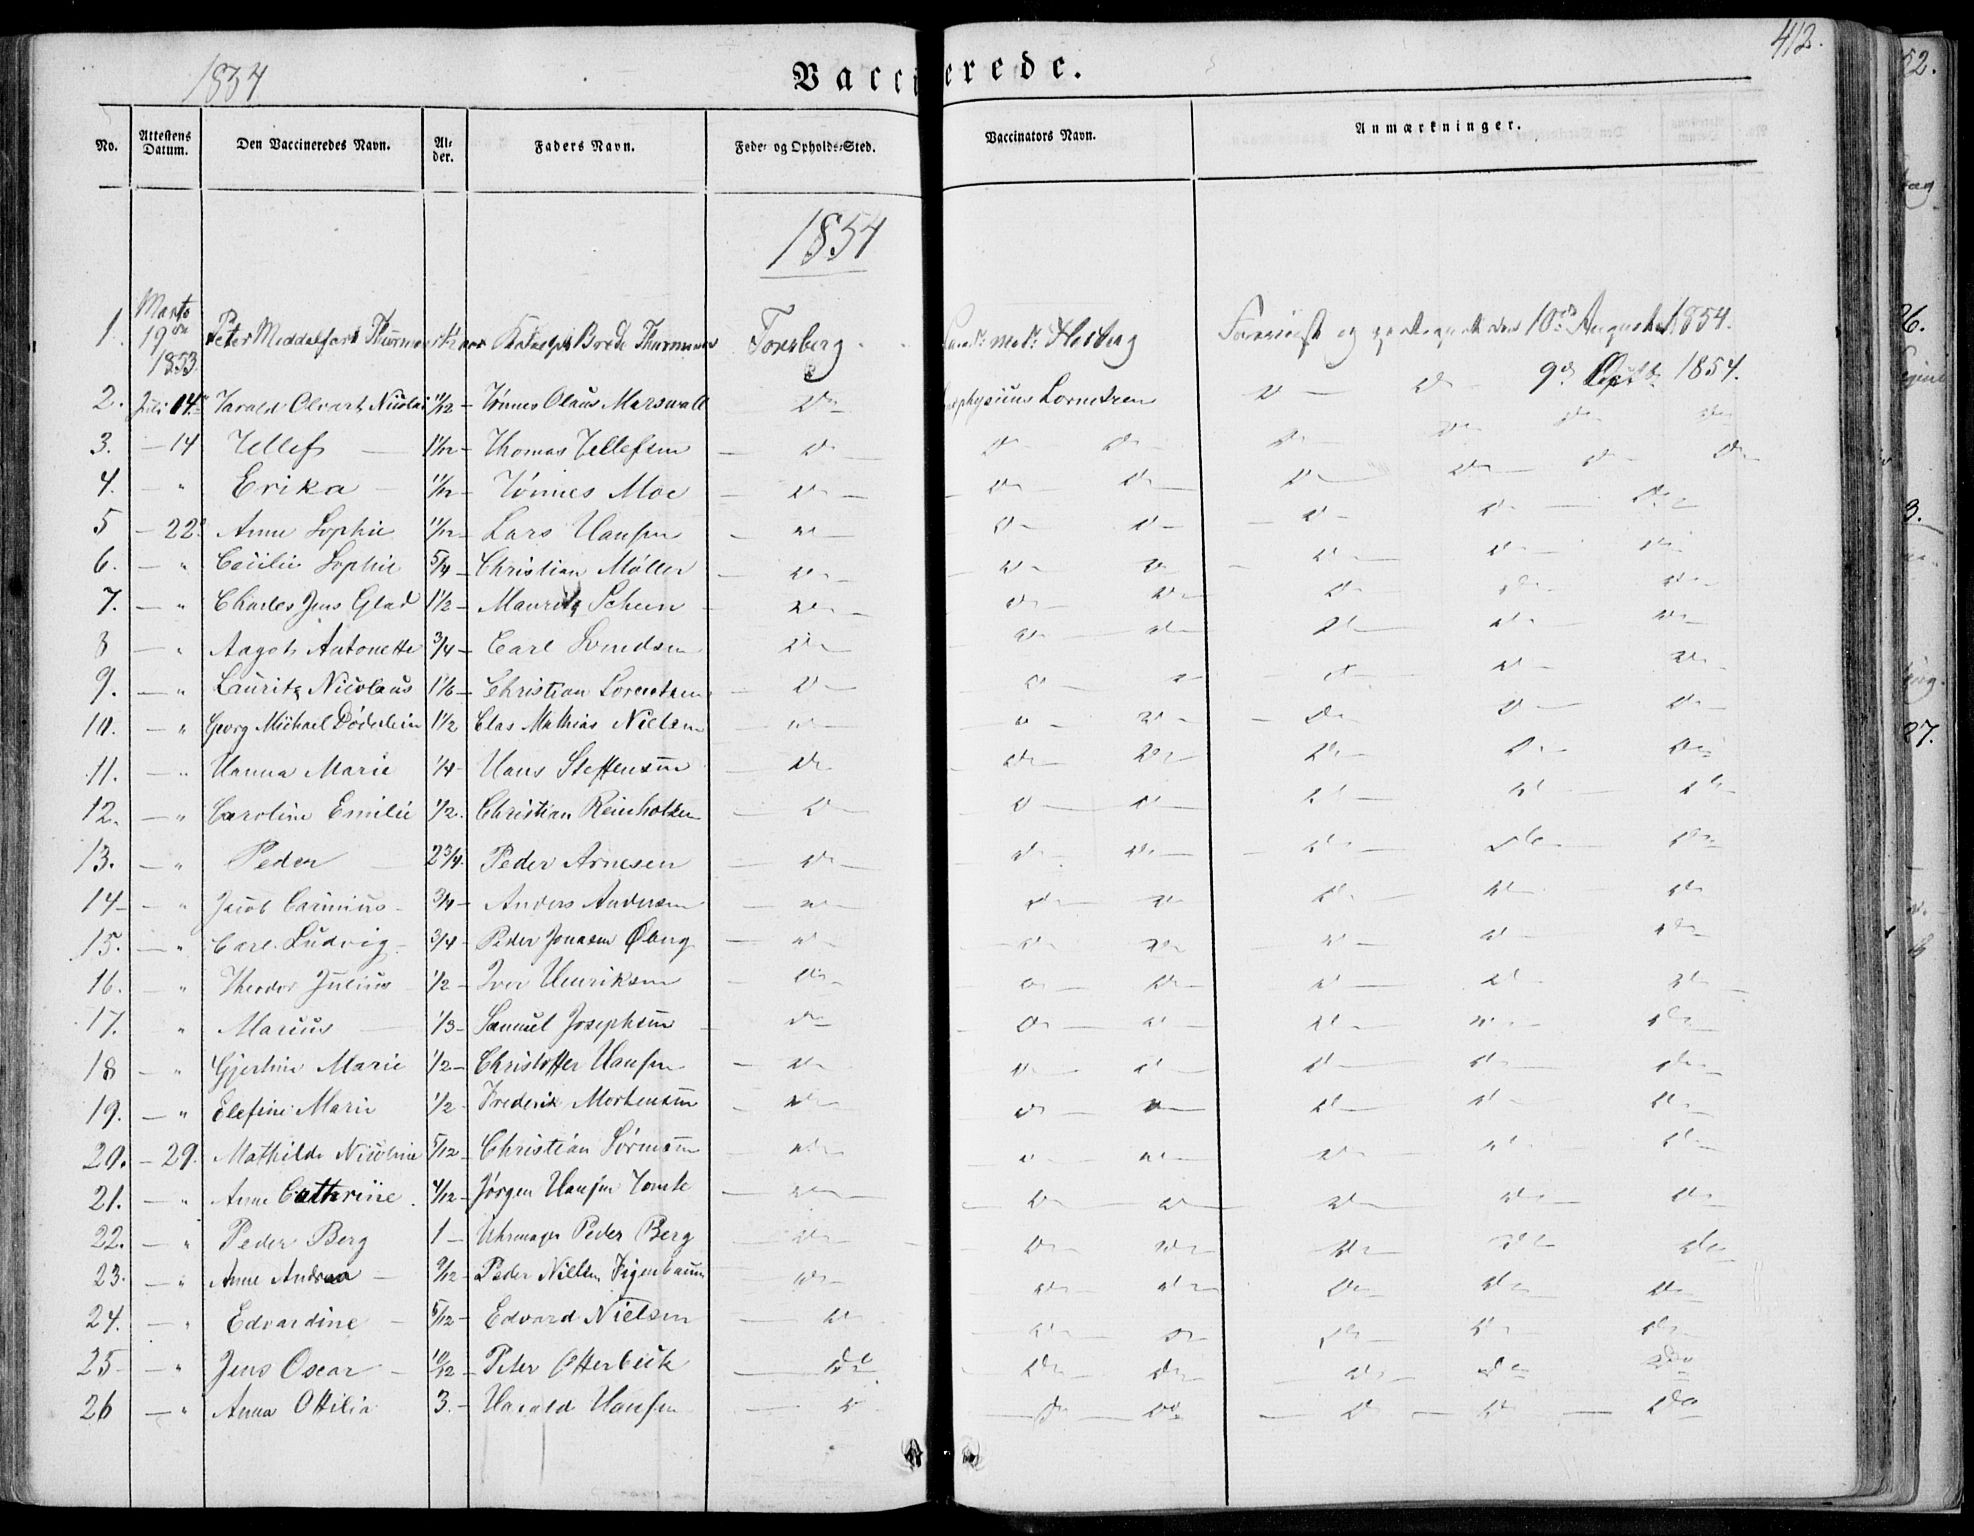 412.
1854
Vaccinerede.
No. Attestens Datum. Den Vaccineredes Navn. Al-der. Faders Navn. Føde- og Opholds-Sted. Vaccinators Navn. Anmærkninger.
1854
1. Marts 19de 1853 Peter Middelfart Thurmann Brede Thurmann Tønsberg Cand. med. Herberg Foreviist og paategnet den 10de August 1854.
2. Juli 14. Harald Olvart Nicolai 11/12 – Tønnes Olaus Marswall Do Lorentzen Do Do 9de Septbr. 1854.
3. – 14 Tellef – 11/12 – Thomas Tellefsen – Do – Do Do Do Do Do Do
4. – " Erika – 11/12 – Tønnes Moe – Do – Do Do Do Do Do Do
5 – 22. Anne Sophie 11/12 – Lars Hansen – Do – Do Do Do Do Do
6. – " Cecilie Sophie 5/4 – Christian Møller – Do – Do Do Do Do Do
7. – " Charles Jens Glad 1 1/2 – Mauritz Scheen – Do – Do Do Do Do Do
8 – " Aagot Antonette 3/4 – Carl Svendsen Do – Do Do Do Do Do
9. – " Lauritz Nicolaus 1 1/6 – Christian Lorentzen – Do – Do Do Do Do Do
10. – " Georg Michael Døderlein 1 1/2 Clas Mathias Nielsen – Do – Do Do Do Do Do
11. – " Hanna Marie 1/4 – Hans Steffensen – Do Do Do Do Do Do
12. – " Caroline Emilie 1/2. Christian Reinholtsen – Do – Do Do Do Do Do
13. – " Peder – 2 3/4. Peder Arnesen – Do – Do Do Do Do Do
14 – – " Jacob 3/4 – Anders Andersen – Do – Do Do Do Do Do
15. – " Carl Ludvig – 3/4 – Peder Jonasen Øberg – Do – Do Do Do Do Do
16. – " Theodor Julius 1/2 – Iver Henriksen – Do – Do Do Do Do Do
17. " Marius – 1/3 – Samuel Josephsen – Do Do Do Do Do Do
18 – " Gjertine Marie 1/2 – Christoffer Hansen – Do – Do Do Do Do Do
19. – " Elefine Marie 1/2 – Frederik Mortensen – Do – Do Do Do Do Do
20. – 29. Mathilde Nicoline 5/12 – Christian Sørensen – Do – Do Do Do Do Do
21. – " Anne Cathrine. 4/12 – Jørgen Hansen – Do – Do Do Do Do Do
22. – " Peder Berg 1 – Uhrmager Peder Berg – Do – Do Do Do Do Do
23. – " Anne Andrea – 9/12 – Peder Nielsen Figenbaum – Do – Do Do Do Do Do
24. – " Edvardine – 5/12 – Edvard Nielsen – Do Do Do Do Do Do
25 – – " Jens Oscar – 10/12 – Peter Otterbeck – Do Do Do Do Do Do
26 – " Anna Ottilia 3. – Harald Hansen – Do – Do Do Do Do Do